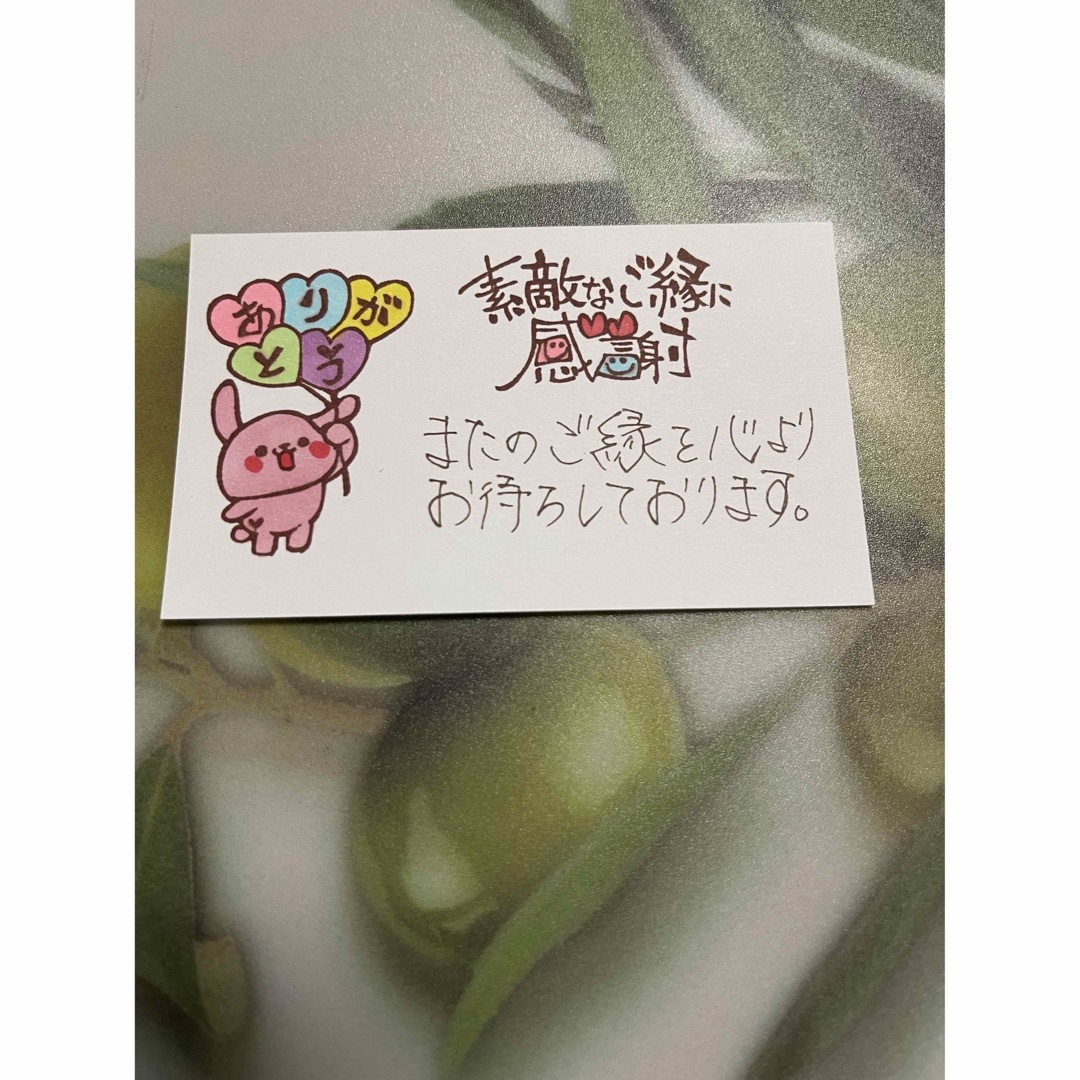 ありが
とう
素敵なご縁に
感謝
またのご縁を心より
お待ちしております。